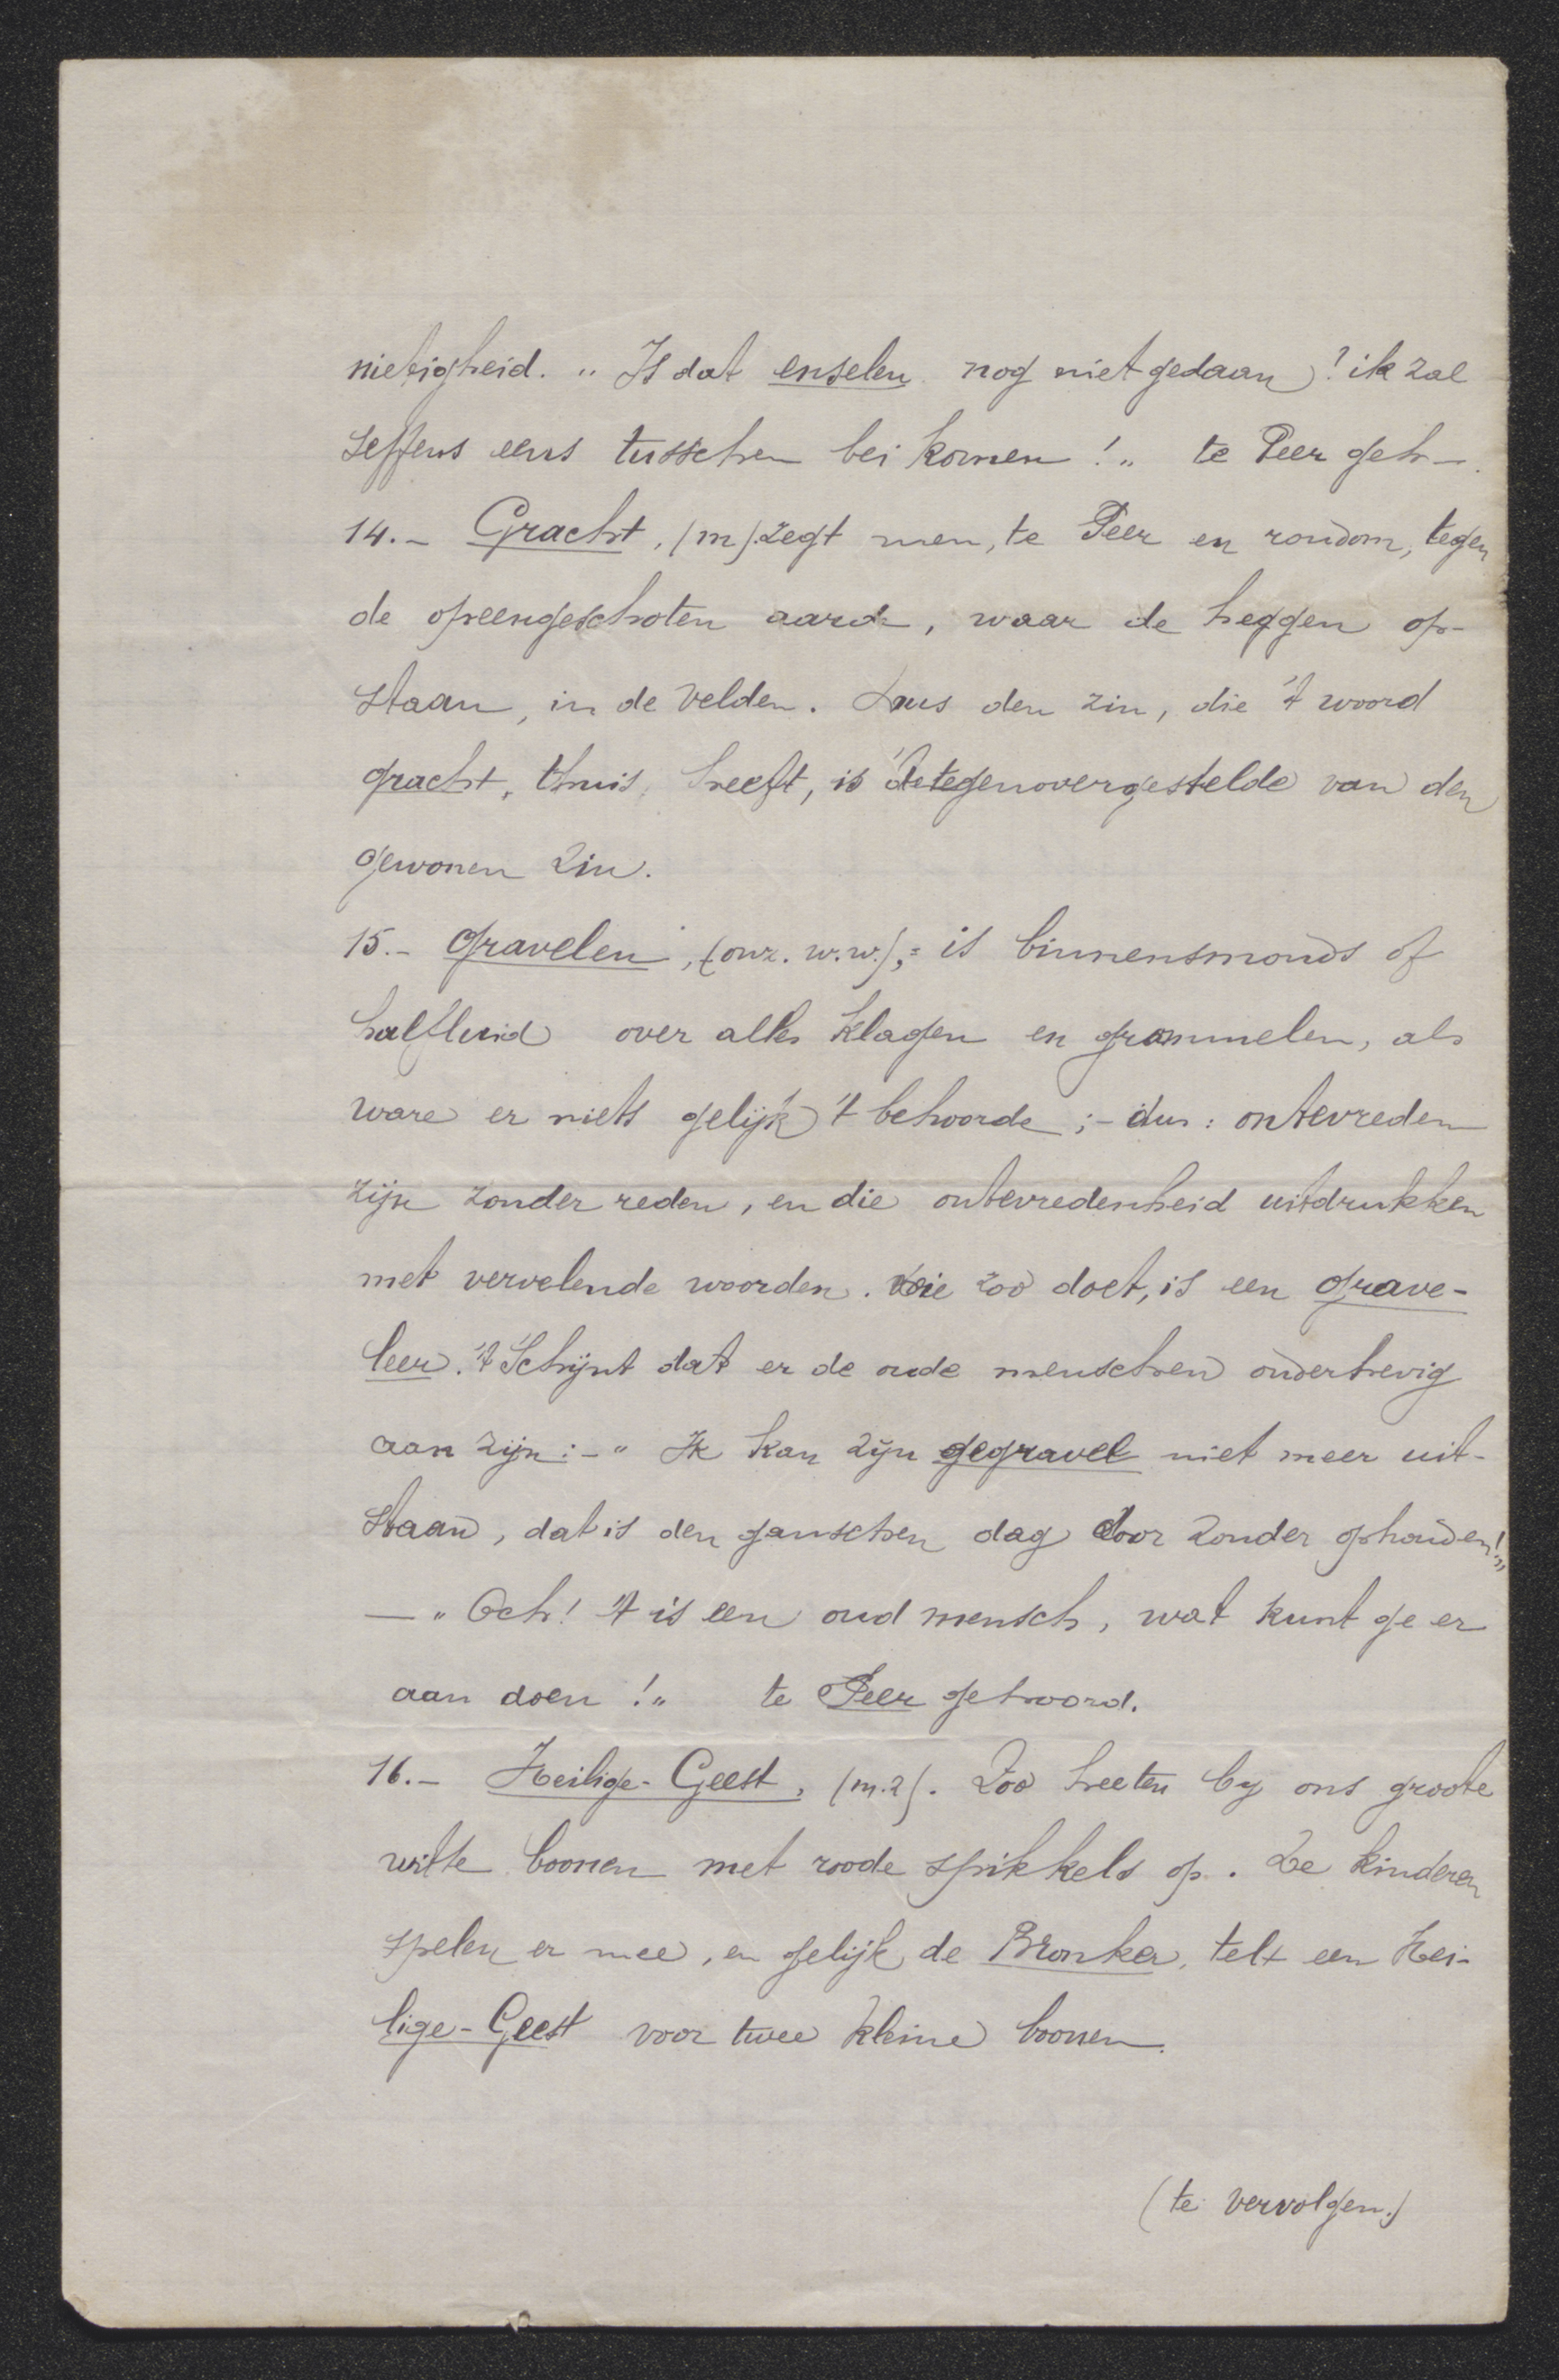 nietigheid. „ Is dat enselen nog niet gedaan? ik zal
seffens eens tusschen bei komen!„ te Peer geh-.
14.- Gracht, (m). zegt men, te Peer en rondom, tegen
de opeengeschoten aarde, waar de heggen op-
staan, in de velden. Dus den zin, die 't woord
gracht, thuis, heeft, is 't tegenovergestelde van den
gewonen zin.
15.- Gravelen, (onz. w.w.), = is binnensmonds of
halfluid over alles klagen en grommelen, als
ware er niets gelijk 't behoorde ;- dus: ontevreden
zijn zonder reden, en die ontevredenheid uitdrukken
met vervelende woorden. Die zoo doet, is een grave-
leer. 't Schijnt dat er de oude menschen onderhevig
aan zijn :- „ Ik kan zijn gegravel niet meer uit-
staan, dat is den ganschen dag door zonder ophouden!„
— „ Och! 't is een oud mensch, wat kunt ge er
aan doen!„ te Peer gehoord.
16.- Heilige-Geest, (m.2). Zoo heeten by ons groote
witte boonen met roode spikkels op. De kinderen
spelen er mee, en gelijk de Bronker, telt een Hei-
lige-Geest voor twee kleine boonen.
(te vervolgen.)